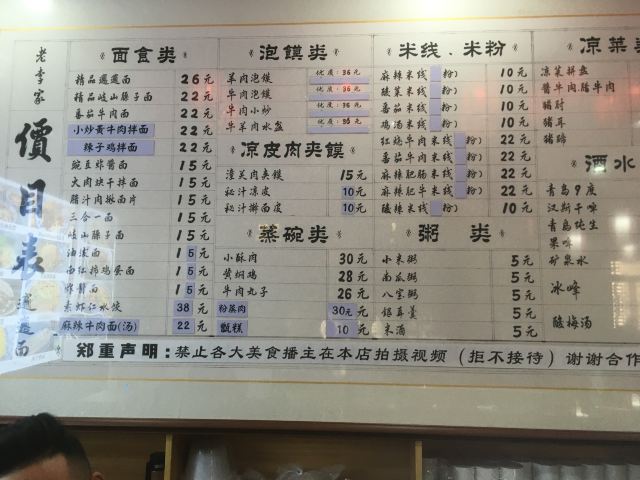 老李家
價目表
面食类
精品𰻝𰻝面 26元
精品岐山臊子面 22元
番茄牛肉面 22元
小炒黄牛肉拌面 22元
辣子鸡拌面 22元
豌豆炸酱面 15元
大肉块干拌面 15元
腊汁肉揪面片 15元
三合一面 15元
岐山臊子面 15元
油泼面 15元
西红柿鸡蛋面 15元
炸酱面 15元
素虾仁水饺 38元
麻辣牛肉面(汤) 22元
泡馍类
羊肉泡馍 优质：36元
牛肉泡馍 优质：36元
牛肉小炒 优质：36元
牛羊肉水盆 优质：36元
凉皮肉夹馍
潼关肉夹馍 15元
秘汁凉皮 10元
秘汁擀面皮 10元
蒸碗类
小酥肉 30元
黄焖鸡 28元
牛肉丸子 26元
粉蒸肉 30元
甑糕 10元
米线、米粉
麻辣米线（粉） 10元
酸菜米线（粉） 10元
番茄米线（粉） 10元
鸡汤米线（粉） 10元
红烧牛肉米线（粉） 22元
番茄牛肉米线（粉） 22元
麻辣肥肠米线（粉） 22元
麻辣肥牛米线（粉） 22元
酸辣米线（粉） 10元
粥 类
小米粥 5元
南瓜粥 5元
八宝粥 5元
银耳羹 5元
米酒 5元
凉菜类
凉菜拼盘
酱牛肉腊牛肉
猪肘
猪耳
猪蹄
酒水
青岛9度
汉斯干啤
青岛纯生
果啤
矿泉水
冰峰
酸梅汤
郑重声明：禁止各大美食播主在本店拍摄视频（拒不接待）谢谢合作